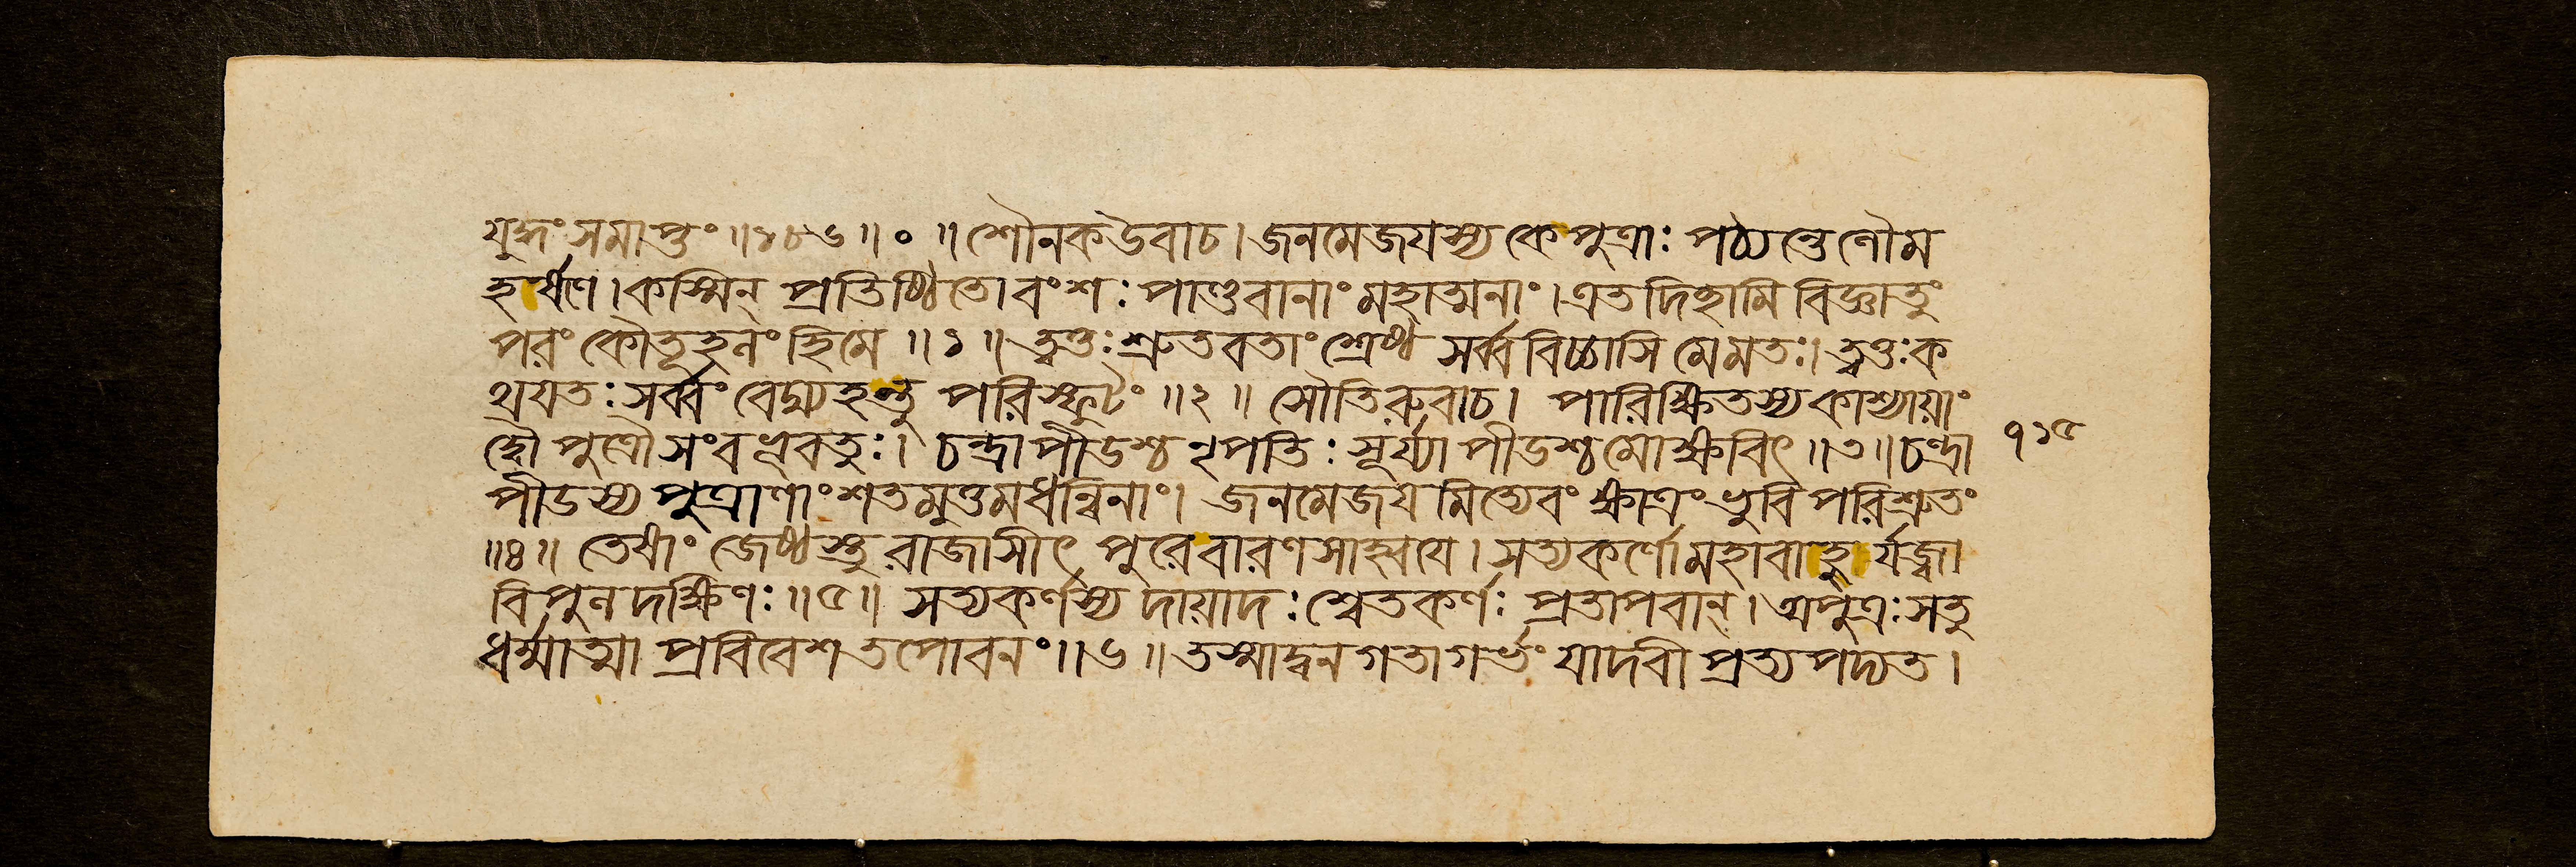 যুদ্ধং সমাপ্তং ॥১৮৬॥ ० ॥ শৌনক উবাচ । জনমেজয়স্য কে পুত্রাঃ পঠ্যন্তে লৌম
হর্ষণে । কস্মিন্ প্রতিষ্ঠিতো বংশঃ পাণ্ডবানাং মহাত্মনাং । এতদিচ্ছামি বিজ্ঞাতুং
পরং কৌতূহলং হি মে ॥১॥ ত্বত্তঃ শ্রুতবতাং শ্রেষ্ঠ সর্ব্ববিচ্চাসি মে মতঃ । ত্বত্তঃ ক
থয়তঃ সর্ব্বং বেদ্ম্যহন্তু পরিস্ফুটং ॥২॥ সৌতিরুবাচ । পারিক্ষিতস্য কাশ্যায়াং
দ্বৌ পুত্রৌ সংবভূবতুঃ । চন্দ্রাপীডশ্চ নৃপতিঃ সূর্য্যাপীডশ্চ মোক্ষবিৎ ॥৩॥ চন্দ্রা
পীডস্য পুত্রাণাং শতমুত্তমধন্বিনাং । জনমেজয়মিত্যেবং ক্ষাত্রং ভুবি পরিশ্রুতং
॥৪॥ তেষাং জেষ্ঠস্তু রাজাসীৎ পুরে বারণসাহ্বয়ে । সত্যকর্ণো মহাবাহুর্যজ্বা
বিপুলদক্ষিণঃ ॥৫॥ সত্যকর্ণস্য দায়াদঃ শ্বেতকর্ণঃ প্রতাপবান্ । অপুত্রঃ স তু
ধর্ম্মাত্মা প্রবিবেশ তপোবনং ॥৬॥ তস্মাদ্বনগতা গর্ভং যাদবী প্রত্যপদ্যত ।
৭১৫